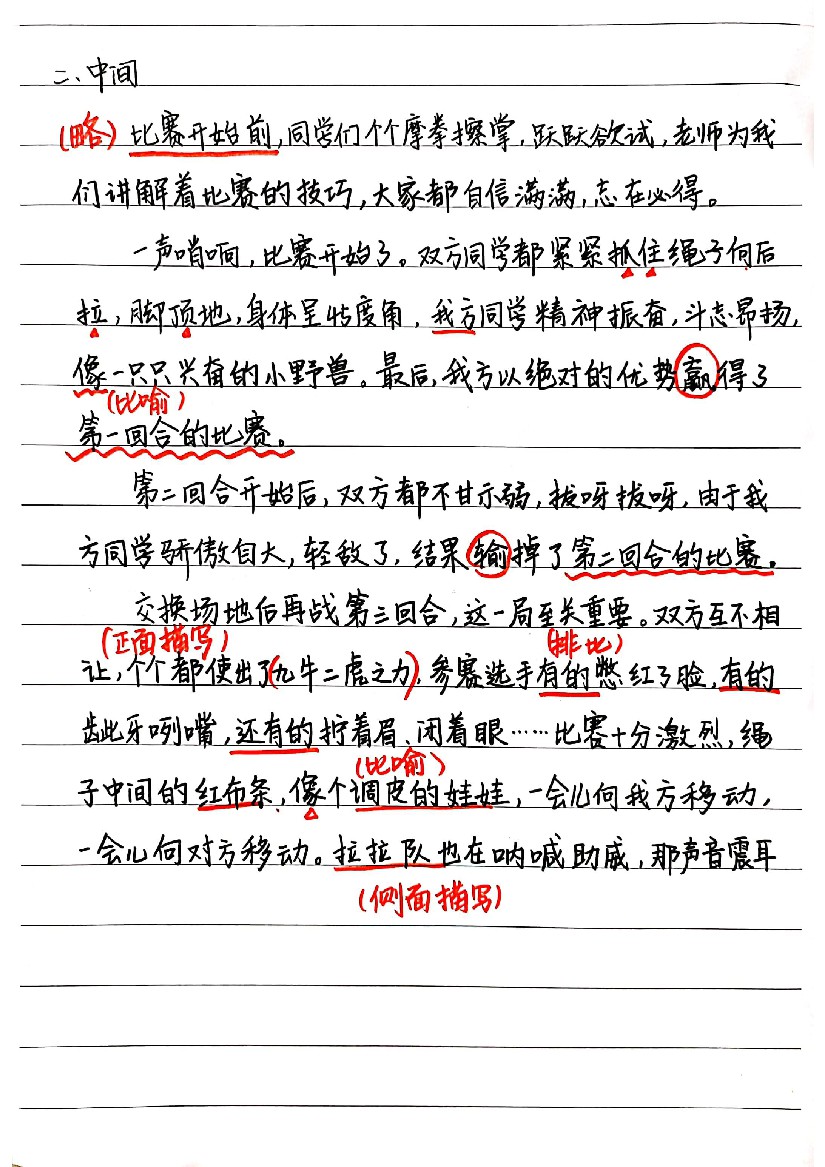 二、中间
(略)比赛开始前,同学们个个摩拳擦掌,跃跃欲试,老师为我
们讲解着比赛的技巧,大家都自信满满,志在必得。
一声哨响,比赛开始了。双方同学都紧紧抓住绳子向后
拉,脚顶地,身体呈45度角,我方同学精神振奋,斗志昂扬,
像一只只兴奋的小野兽。最后,我方以绝对的优势赢得了
(比喻)
第一回合的比赛。
第二回合开始后,双方都不甘示弱,拔呀拔呀,由于我
方同学骄傲自大,轻敌了,结果输掉了第二回合的比赛。
交换场地后再战第三回合,这一局至关重要。双方互不相
(正面描写) (排比)
让,个个都使出了(九牛二虎之力),参赛选手有的憋红了脸,有的
龇牙咧嘴,还有的拧着眉、闭着眼……比赛十分激烈,绳
(比喻)
子中间的红布条,像个调皮的娃娃,一会儿向我方移动,
一会儿向对方移动。拉拉队也在呐喊助威,那声音震耳
(侧面描写)